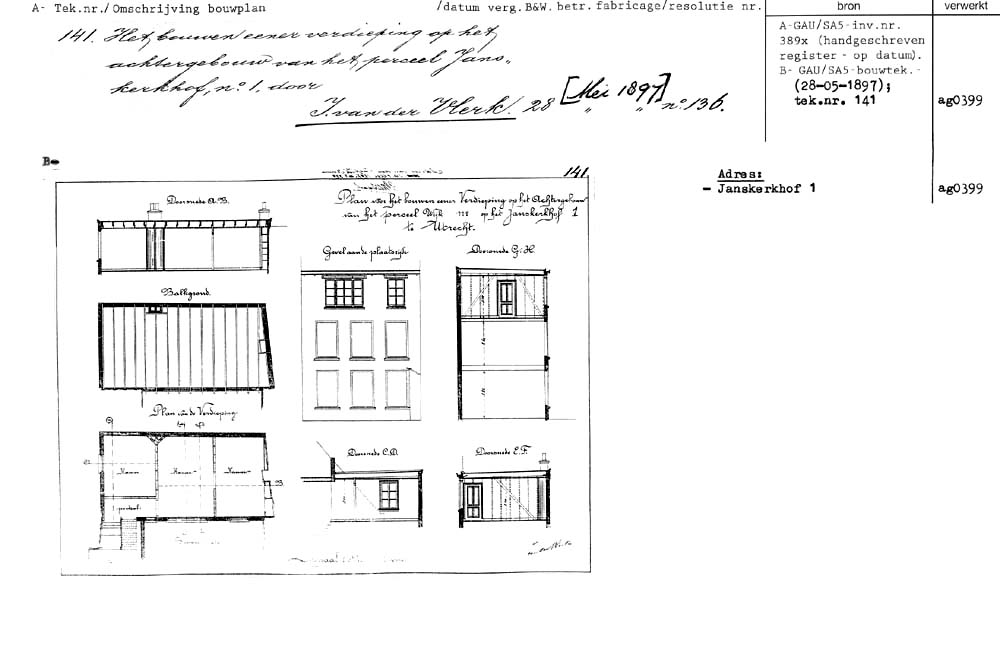 A- Tek.nr./Omschrijving bouwplan
/datum verg.B&W.betr.fabricage/resolutie nr.
bron
verwerkt
141. Het bouwen eener verdieping op het
achtergebouw van het perceel Jans-
kerkhof, nº. 1, door
I. van der Vlerk. 28 [Mei 1897] " " nº. 136.
A-GAU/SA5-inv.nr.
389x (handgeschreven
register - op datum).
B- GAU/SA5-bouwtek.-
(28-05-1897);
tek.nr. 141
ag0399
B-
141
Adres:
- Janskerkhof 1
ag0399
Plan voor het bouwen eener Verdieping op het Achtergebouw
van het perceel Wijk op het Janskerkhof 1
te Utrecht.
Doorsnede A.B.
Gevel aan de plaatszijde
Doorsnede G.H.
Balkgrond.
Plan van de Verdieping.
Kamer
Kamer
Kamer
portaal
B.
Doorsnede C.D.
Doorsnede E.F.